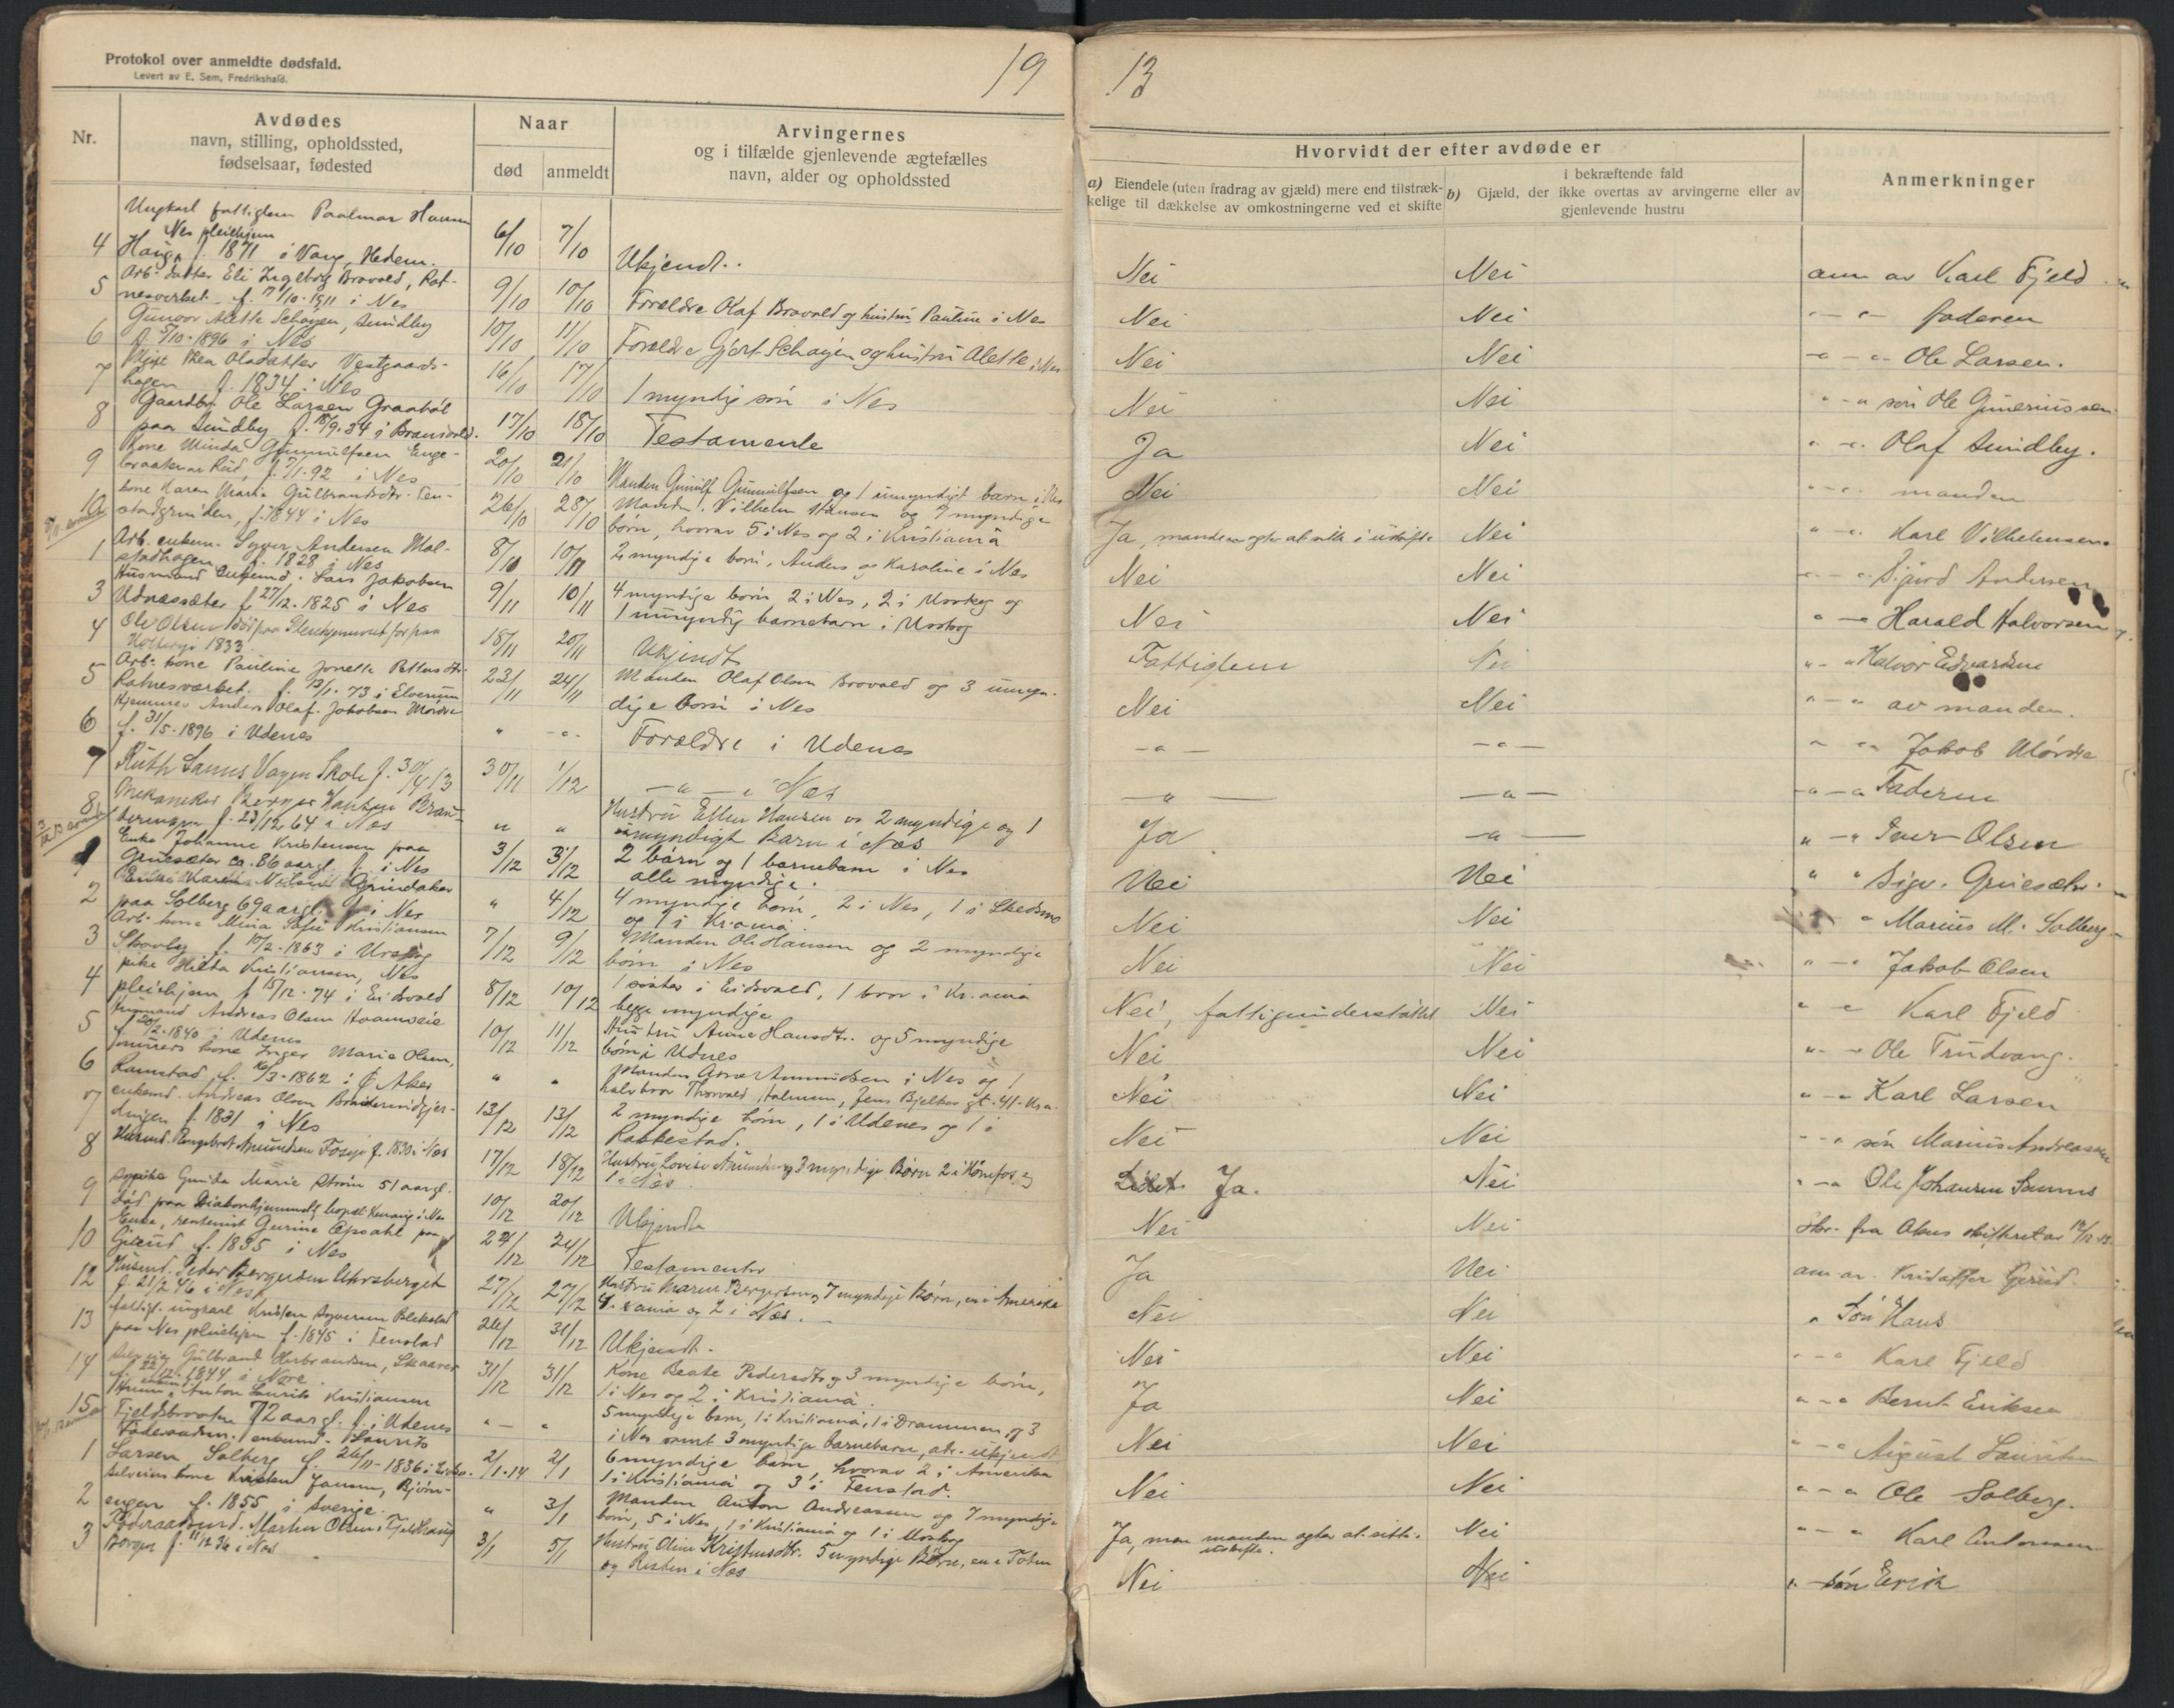 Protokol over anmeldte dødsfald.
Levert av E. Sem, Fredrikshald.
19
13
Nr.
Avdødes
navn, stilling, opholdssted,
fødselsaar, fødested
Naar
død
anmeldt
Arvingernes
og i tilfælde gjenlevende ægtefælles
navn, alder og opholdssted
Hvorvidt der efter avdøde er
a) Eiendele (uten fradrag av gjæld) mere end tilstræk-
kelige til dækkelse av omkostningerne ved et skifte
i bekræftende fald
b) Gjæld, der ikke overtas av arvingerne eller av
gjenlevende hustru
Anmerkninger
Ungkarl fattiglem Paalmar Hansen
Nes pleiehjem
4 Hauga f. 1871 i Vang, Hedem. 6/10 7/10 Ukjendt. Nei Nei anm av Karl Fjeld
Arb. datter Eli Ingeborg Brovold, Rot-
5 nesverket f. 7/10-1911 i Nes 9/10 10/10 Forældre Olaf Brovold og hustru Pauline i Nes Nei Nei " - " faderen
Gunvor Alette Schøyen, Sundby
6 f. 5/10-1896 i Nes 10/10 11/10 Forældre Gjert Schøyen og hustru Alette i Nes Nei Nei " - " Ole Larsen.
Thea Olsdatter Vestgaards-
7 hagen f. 1834 i Nes 16/10 17/10 1 myndig søn i Nes Nei Nei " - " søn Ole Guneriussen
Gaardbr. Ole Larsen Graabøl
8 paa Sundby f. 18/9.34 i Brandvold. 17/10 18/10 Testamente Ja Nei " - " Olaf Sundby.
Kone Minda Gunnulfsen Enge-
9 braatenar Rud, f. 7/1.92 i Nes 20/10 21/10 Manden Gunulf Gunnulfsen og 1 umyndigt barn i Nes Nei Nei " - " manden
kone Karen Marie Gulbrandsdtr. Fen-
10 stadgrinden, f. 1844 i Nes 26/10 28/10 Manden Vilhelm Hansen og 7 myndige
børn, hvorav 5 i Nes og 2 i Kristiania Ja, manden agter at sitte i uskifte Nei " - " Karl Vilhelmsen
Arb. enkem. Syver Andersen Mol-
1 stadhagen f. 1828 i Nes 8/10 10/11 2 myndige børn, Anders og Karoline i Nes Nei Nei " - " Sigurd Andersen
Husmand Enkemd. Lars Jakobsen
3 Udnessæter f. 27/12.1825 i Nes 9/11 10/11 4 myndige børn 2 i Nes, 2 i Urskog og
1 umyndig barnebarn i Urskog Nei Nei " - " Harald Halvorsen
4 Ole Olsen
1833. 18/11 20/11 Ukjendt Fattiglem Nei " - " Halvor Edvardsen
Arb. kone Pauline Jonette Pettersdtr.
5 Rotnesværket. f. 13/1.73 i Elverum 23/11 24/11 Manden Olaf Olsen Brovold og 3 umyn-
dige børn i Nes Nei Nei " - " av manden.
Hjemmev Anders Olaf Jakobsen Mørdre
6 f. 31/5.1896 i Udenes " - " - Forældre i Udenes - " - - " - " - " Jakob Mørdre
7 Ruth Sanns Vagen Skole f. 30/4 13 30/11 1/12 - " - i Næs - " - - " - " - " Faderen
Mekaniker Berger Hansen Braa-
8 f. 23/12 64 i Næs " " Hustru Ellen Hansen os 2 myndige og 1
umyndigt Barn i Næs Ja - " - " - " Iver Olsen
Enke Johanne Kristensen paa
1 Gruesæter ca. 86 aar gl. f. i Nes 3/12 3/12 2 børn og 1 barnebarn i Nes
alle myndige. Nei Nei " " Sigv. Gruesæter
Enke Karen Nilsen Grindaker
2 paa Solberg 69 aar gl. f. i Nes " 4/12 4 myndige børn, 2 i Nes, 1 i Skedsmo
og 1 i Kr.ania Nei Nei " Marius M. Solberg
Arb. kone Mina Sofie Kristiansen
3 Skovby f. 10/2-1863 i Urskog 7/12 9/12 Manden Ole Hansen og 2 myndige
børn i Nes Nei Nei " - " Jakob Olsen
pike Hilda Kristiansen, Nes
4 pleiehjem f. 15/12.74 i Eidsvold 8/12 10/12 1 søster i Eidsvold, 1 bror i Kr.ania
begge myndige Nei, fattigunderstøttet Nei " - " Karl Fjeld
Husmand Andreas Olsen
5 f. 20/2.1840 i Udenes 10/12 11/12 Hustru Anne Hansdtr. og 5 myndige
børn i Udnes Nei Nei " - " Ole Trudvang.
murers kone Inger Marie Olsen,
6 Ramstad f. 16/3-1862 i Ø Aker " " Manden Amundsen i Nes og 1
halvbror Thorvald Halvorsen, Jens Bjelkes gt. 41 - Kr.a. Nei Nei " - " Karl Larsen
enkemd. Andreas Olsen
7 f. 1831 i Nes 13/12 13/12 2 myndige børn, 1 i Udenes og 1 i
Rakkestad. Nei Nei " - " søn Marius Andreassen
8 Husmd. Engebret Amundsen Foseje f. 1830 i Nes 17/12 18/12 Hustru Lovise Amundsen og 3 myndige Børn 2 i Hønefos og
1 i Næs Ja. Nei " - " Ole Johansen Sanns
9 Gunda Marie Strøm 51 aar gl.
død paa Diakonhjemmet 10/12 20/12 Ukjendt Nei Nei Skr. fra Akers skifteret av 19/12-13
Enke, rentenist Gurine Opsahl paa
10 Gjerud f. 1835 i Nes 22/12 24/12 Testamente Ja Nei anm av. Kristoffer Gjerud.
Husmd. Peder Bergersen Uhrsberget
12 f. 21/2 46 i Næs 27/12 27/12 Hustru Maren Bergersen og 7 myndige Børn, en i Amerika
4. Kr.ania og 2 i Næs. Nei Nei " Søn Hans
fattigl. ungkarl Kristen Syversen Blekstad
13 paa Nes pleiehjem f. 1845 i Fenstad 24/12 31/12 Ukjendt. Nei Nei " - " Karl Fjeld
Selveier Gulbrand Herbrandsen, Skaarer
14 f. 22/12.1844 i Nore 31/12 31/12 Kone Beate Pedersdtr og 3 myndige børn,
1 i Nes og 2 i Kristiania. Ja Nei " - " Bernt Eriksen
Anton Laurits Kristiansen
15 Fjeldbraaten 72 aar gl. f. i Udenes " - " 5 myndige børn, 1 i Kristiania, 1 i Drammen og 3
i Nes samt 3 myndige barnebarn, adr. ukjendt Nei Nei " - " August Lauritsen
Føderaadsm. enkemd. Laurits
1 Larsen Solberg f. 26/11-1836 2/1-14 2/1 6 myndige børn hvorav 2 i Amerika
1 i Kristiania og 3 i Fenstad. Nei Nei " - " Ole Solberg.
Selveiers kone Kristen Jansen, Bjørn-
2 engen f. 1855 i Sverige. " 3/1 Manden Anton Andreassen og 7 myndige
børn, 5 i Nes, 1 i Kristiania og 1 i Urskog Ja, men manden agter at sitte i
uskifte. Nei " - " Karl Antonsen
Føderaadsmd. Martin Olsen, Fjeldhaug
3 Borgen f. 11/12 36 i Næs 3/1 5/1 Hustru Oline Kristensdtr. 5 myndige Børn, en i Toten
og Resten i Næs Nei Nei " - søn Erik